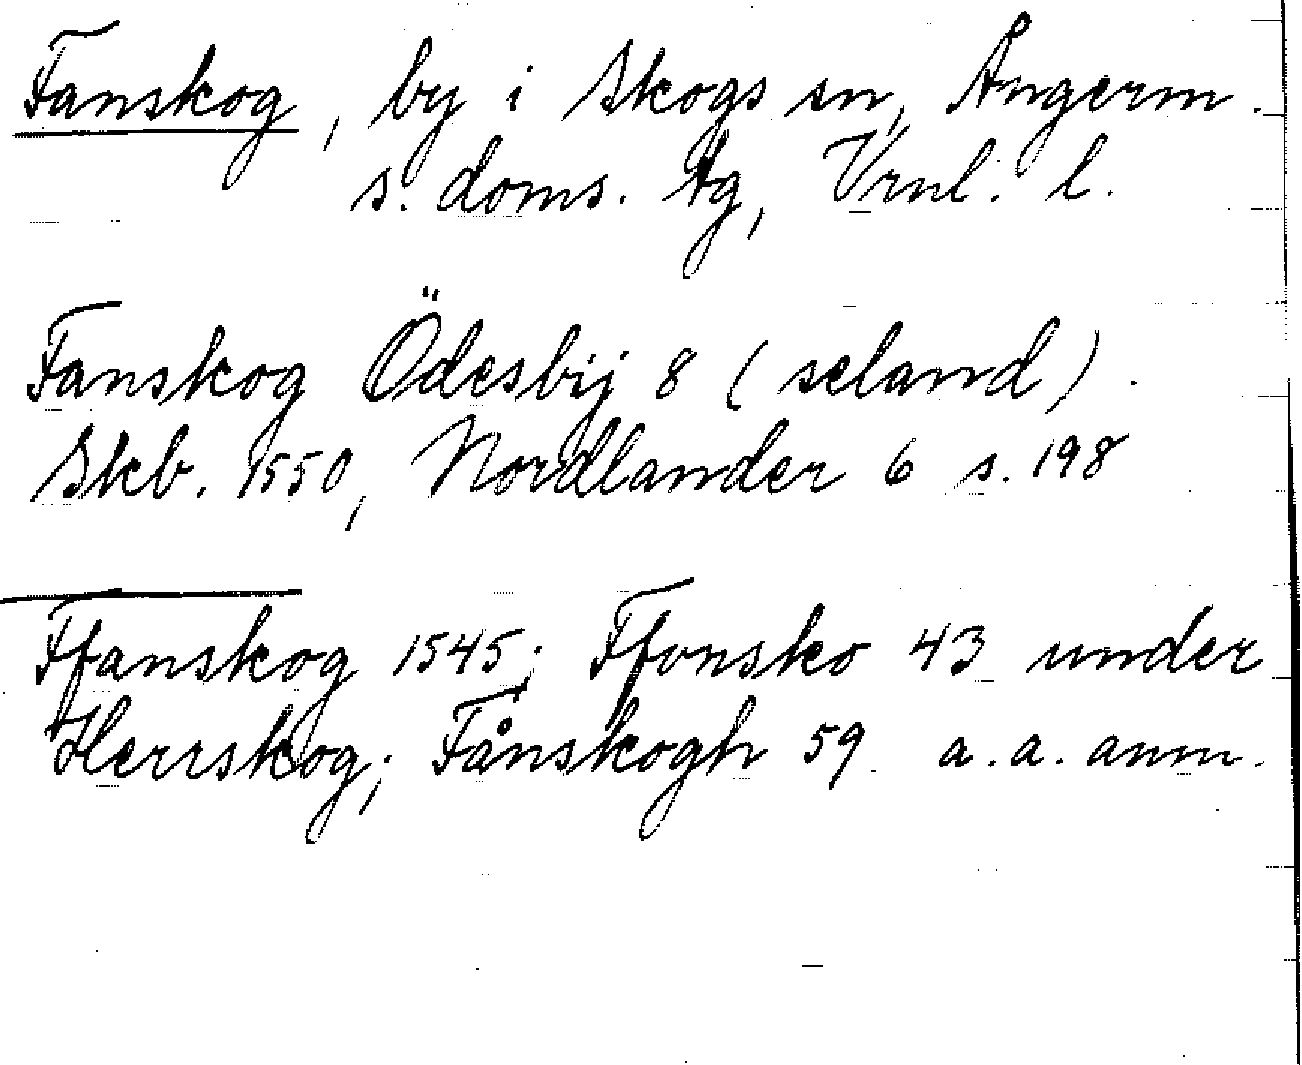 Fanskog, by i Skogs sn, Ångerm.
s. doms. tg, Vrnl. l.
Fanskog Ödesbij 8 (seland).
Skb. 1550, Nordlander 6 s. 198
Ffanskog 1545; Ffonsko 43 under
Herrskog; Fånskogh 59 a.a. anm.